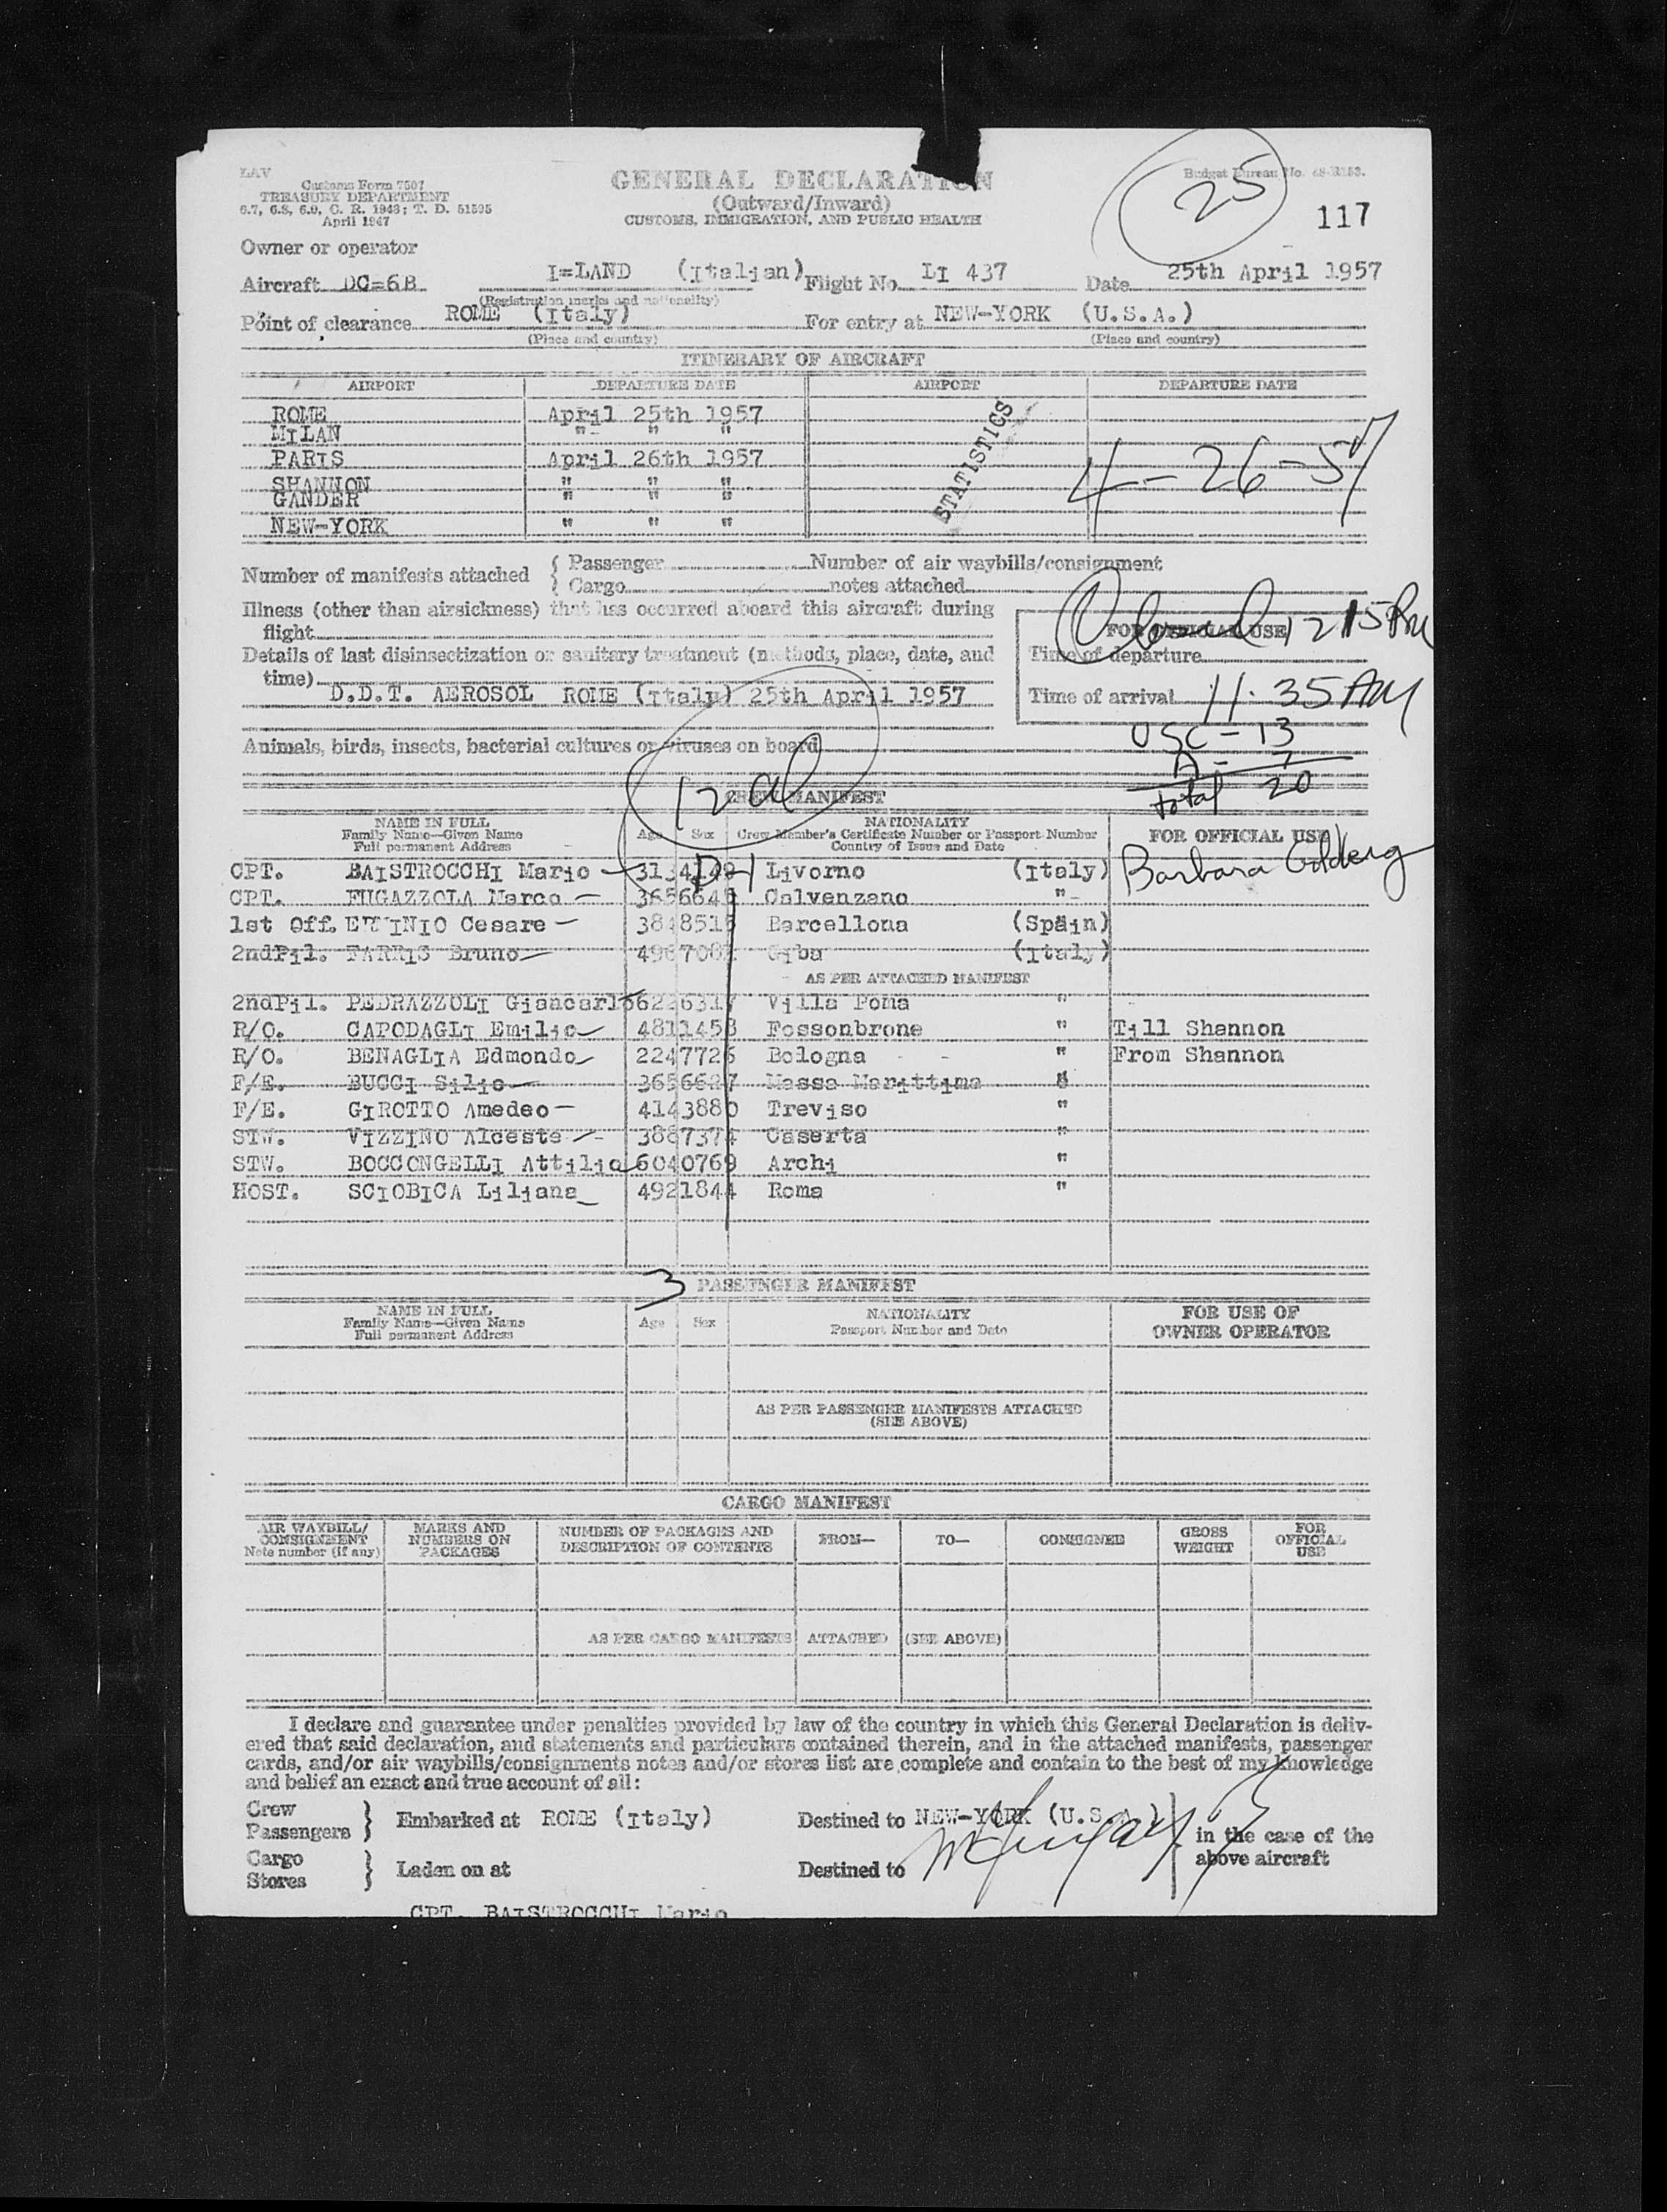 LAV
Customs Form 7507
TREASURY DEPARTMENT
6.7, 6.8, 6.9, C. R. 1943; T. D. 51595
April 1947
GENERAL DECLARATION
(Outward/Inward)
CUSTOMS, IMMIGRATION, AND PUBLIC HEALTH
Budget Bureau No.
25
117
Owner or operator
Aircraft DC=6B I=LAND (Italian) Flight No. LI 437 Date 25th April 1957
(Registration marks and nationality)
Point of clearance ROME (Italy) For entry at NEW-YORK (U.S.A.)
(Place and country) (Place and country)
ITINERARY OF AIRCRAFT
AIRPORT DEPARTURE DATE AIRPORT DEPARTURE DATE
ROME April 25th 1957
MILAN "- " "
PARIS April 26th 1957
SHANNON " " "
GANDER " " "
NEW-YORK " " "
STATISTICS
4-26-57
Number of manifests attached { Passenger Number of air waybills/consignment
Cargo notes attached
Illness (other than airsickness) that has occurred aboard this aircraft during
flight
Details of last disinsectization or sanitary treatment (methods, place, date, and
time)
D.D.T. AEROSOL ROME (Italy) 25th April 1957
FOR OFFICIAL USE 1215PM
Time of departure
Time of arrival 11:35AM
USC - 13
A - 7
total 20
Animals, birds, insects, bacterial cultures or viruses on board
12
CREW MANIFEST
NAME IN FULL
Family Name—Given Name
Full permanent Address
Age Sex
NATIONALITY
Crew Member's Certificate Number or Passport Number
Country of Issue and Date
FOR OFFICIAL USE
Barbara Goldberg
CPT. BAISTROCCHI Mario Livorno (Italy)
CPT. FUGAZZOLA Marco 3656645 Calvenzano "-
1st Off. Cesare 3848515 Barcellona (Spain)
2ndPil. FARRIS Bruno Giba (Italy)
AS PER ATTACHED MANIFEST
2ndPil. PEDRAZZOLI Giancarlo 6226317 Villa Poma "
R/O. CAPODAGLI Emilio 4811458 Fossonbrone " Till Shannon
R/O. BENAGLIA Edmondo 2247726 Bologna - - " From Shannon
F/E. BUCCI Silio 3656627 Massa Marittima "
F/E. GIROTTO Amedeo 4143880 Treviso "
STW. VIZZINO Alceste 3887374 Caserta "
STW. BOCCONGELLI Attilio 6040769 Archi "
HOST. SCIOBICA Liliana 4921844 Roma "
3
PASSENGER MANIFEST
NAME IN FULL
Family Name—Given Name
Full permanent Address
Age Sex
NATIONALITY
Passport Number and Date
FOR USE OF
OWNER OPERATOR
AS PER PASSENGER MANIFESTS ATTACHED
(SEE ABOVE)
CARGO MANIFEST
AIR WAYBILL/
CONSIGNMENT
Note number (if any)
MARKS AND
NUMBERS ON
PACKAGES
NUMBER OF PACKAGES AND
DESCRIPTION OF CONTENTS
FROM— TO— CONSIGNEE
GROSS
WEIGHT
FOR
OFFICIAL
USE
AS PER CARGO MANIFESTS ATTACHED (SEE ABOVE)
I declare and guarantee under penalties provided by law of the country in which this General Declaration is deliv-
ered that said declaration, and statements and particulars contained therein, and in the attached manifests, passenger
cards, and/or air waybills/consignments notes and/or stores list are complete and contain to the best of my knowledge
and belief an exact and true account of all:
Crew
Passengers } Embarked at ROME (Italy) Destined to NEW-YORK (U.S.A.)
in the case of the
above aircraft
Cargo
Stores } Laden on at Destined to
CPT. BAISTROCCHI Mario